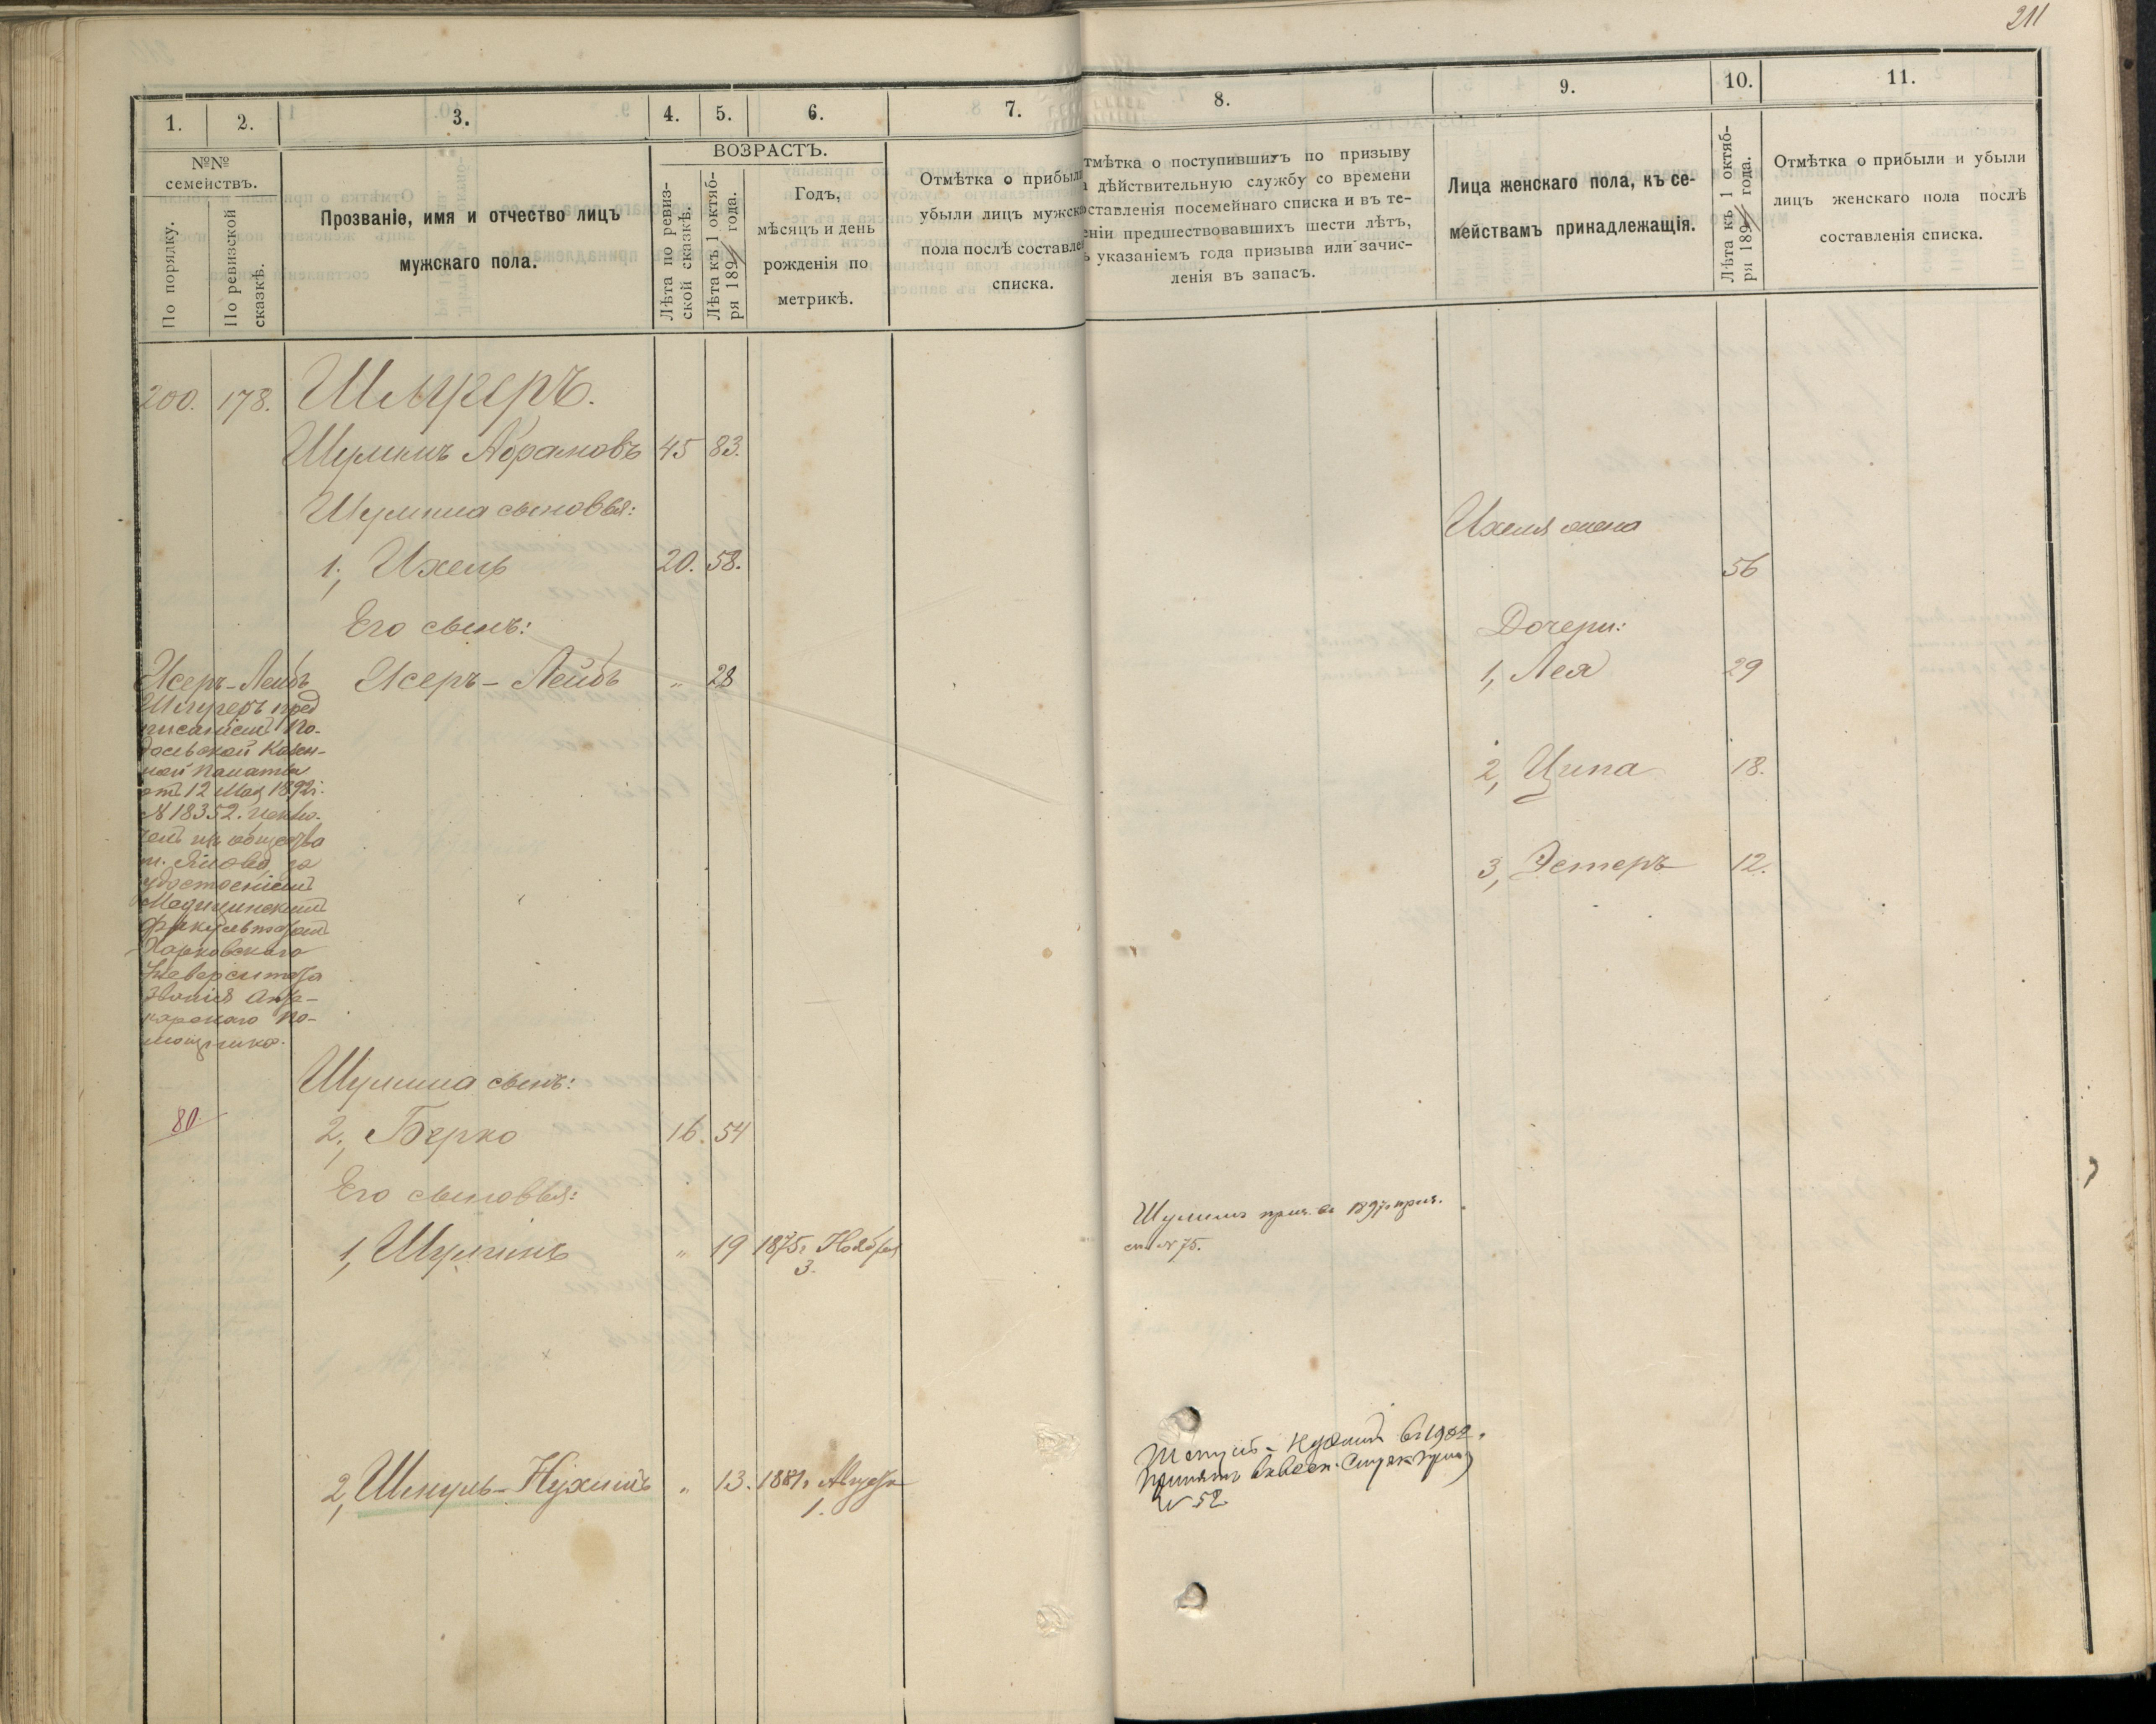 211
1.
2.
3.
4.
5.
6.
7.
8.
9.
10.
11.
№№
семействъ.
По порядку.
По ревизской
сказкѣ.
Прозваніе, имя и отчество лицъ
мужскаго пола.
ВОЗРАСТЪ.
Лѣта по ревиз-
ской сказкѣ.
Лѣта къ 1 октяб-
ря 189 года.
Годъ,
мѣсяцъ и день
рожденія по
метрикѣ.
Отмѣтка о прибыли
убыли лицъ мужск
пола послѣ составле
списка.
тмѣтка о поступившихъ по призыву
дѣйствительную службу со времени
оставленія посемейнаго списка и въ те-
еніи предшествовавшихъ шести лѣтъ,
ъ указаніемъ года призыва или зачис-
ленія въ запасъ.
Лица женскаго пола, къ се-
мействамъ принадлежащія.
Лѣта къ 1 октяб-
ря 189 года.
Отмѣтка о прибыли и убыли
лицъ женскаго пола послѣ
составленія списка.
200. 178.
Шулимъ Абрамовъ 45 83.
Шулима сыновья:
Ихеля жена
1, Ихель 20. 58.
56
Его сынъ:
Дочери:
Исеръ-Лейбъ „ 28
1, Лея 29
2, Ципа 18.
3, Эстеръ 12.
Исеръ-Лейбъ
пред
писаніемъ По-
дольской Казен-
ной Палаты
отъ 12 Мая 1892г.
№ 18352. исклю-
ченъ изъ общества
м. Янова, за
удостоеніемъ
Медицинскимъ
Факультетомъ
Харьковскаго
Университета
званія Апте-
карскаго По-
мощника.
Шулима сынъ:
80
2, Берко 16. 54
Его сыновья:
1, Шулимъ „ 19 1875г. Ноября
3.
Шулимъ приз. въ 1897 приз.
сп. № 75.
2, Шмуль-Нухимъ „ 13. 1881г. Августа
1.
Шмуль-Нухимъ въ 1902.
Принятъ
№ 52